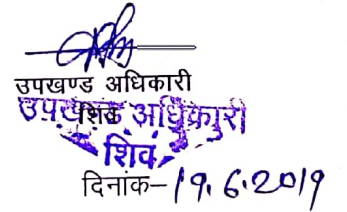 उपखण्ड अधिकारी
शिव
उपखण्ड अधिकारी
शिव
दिनांक– 19.6.2019